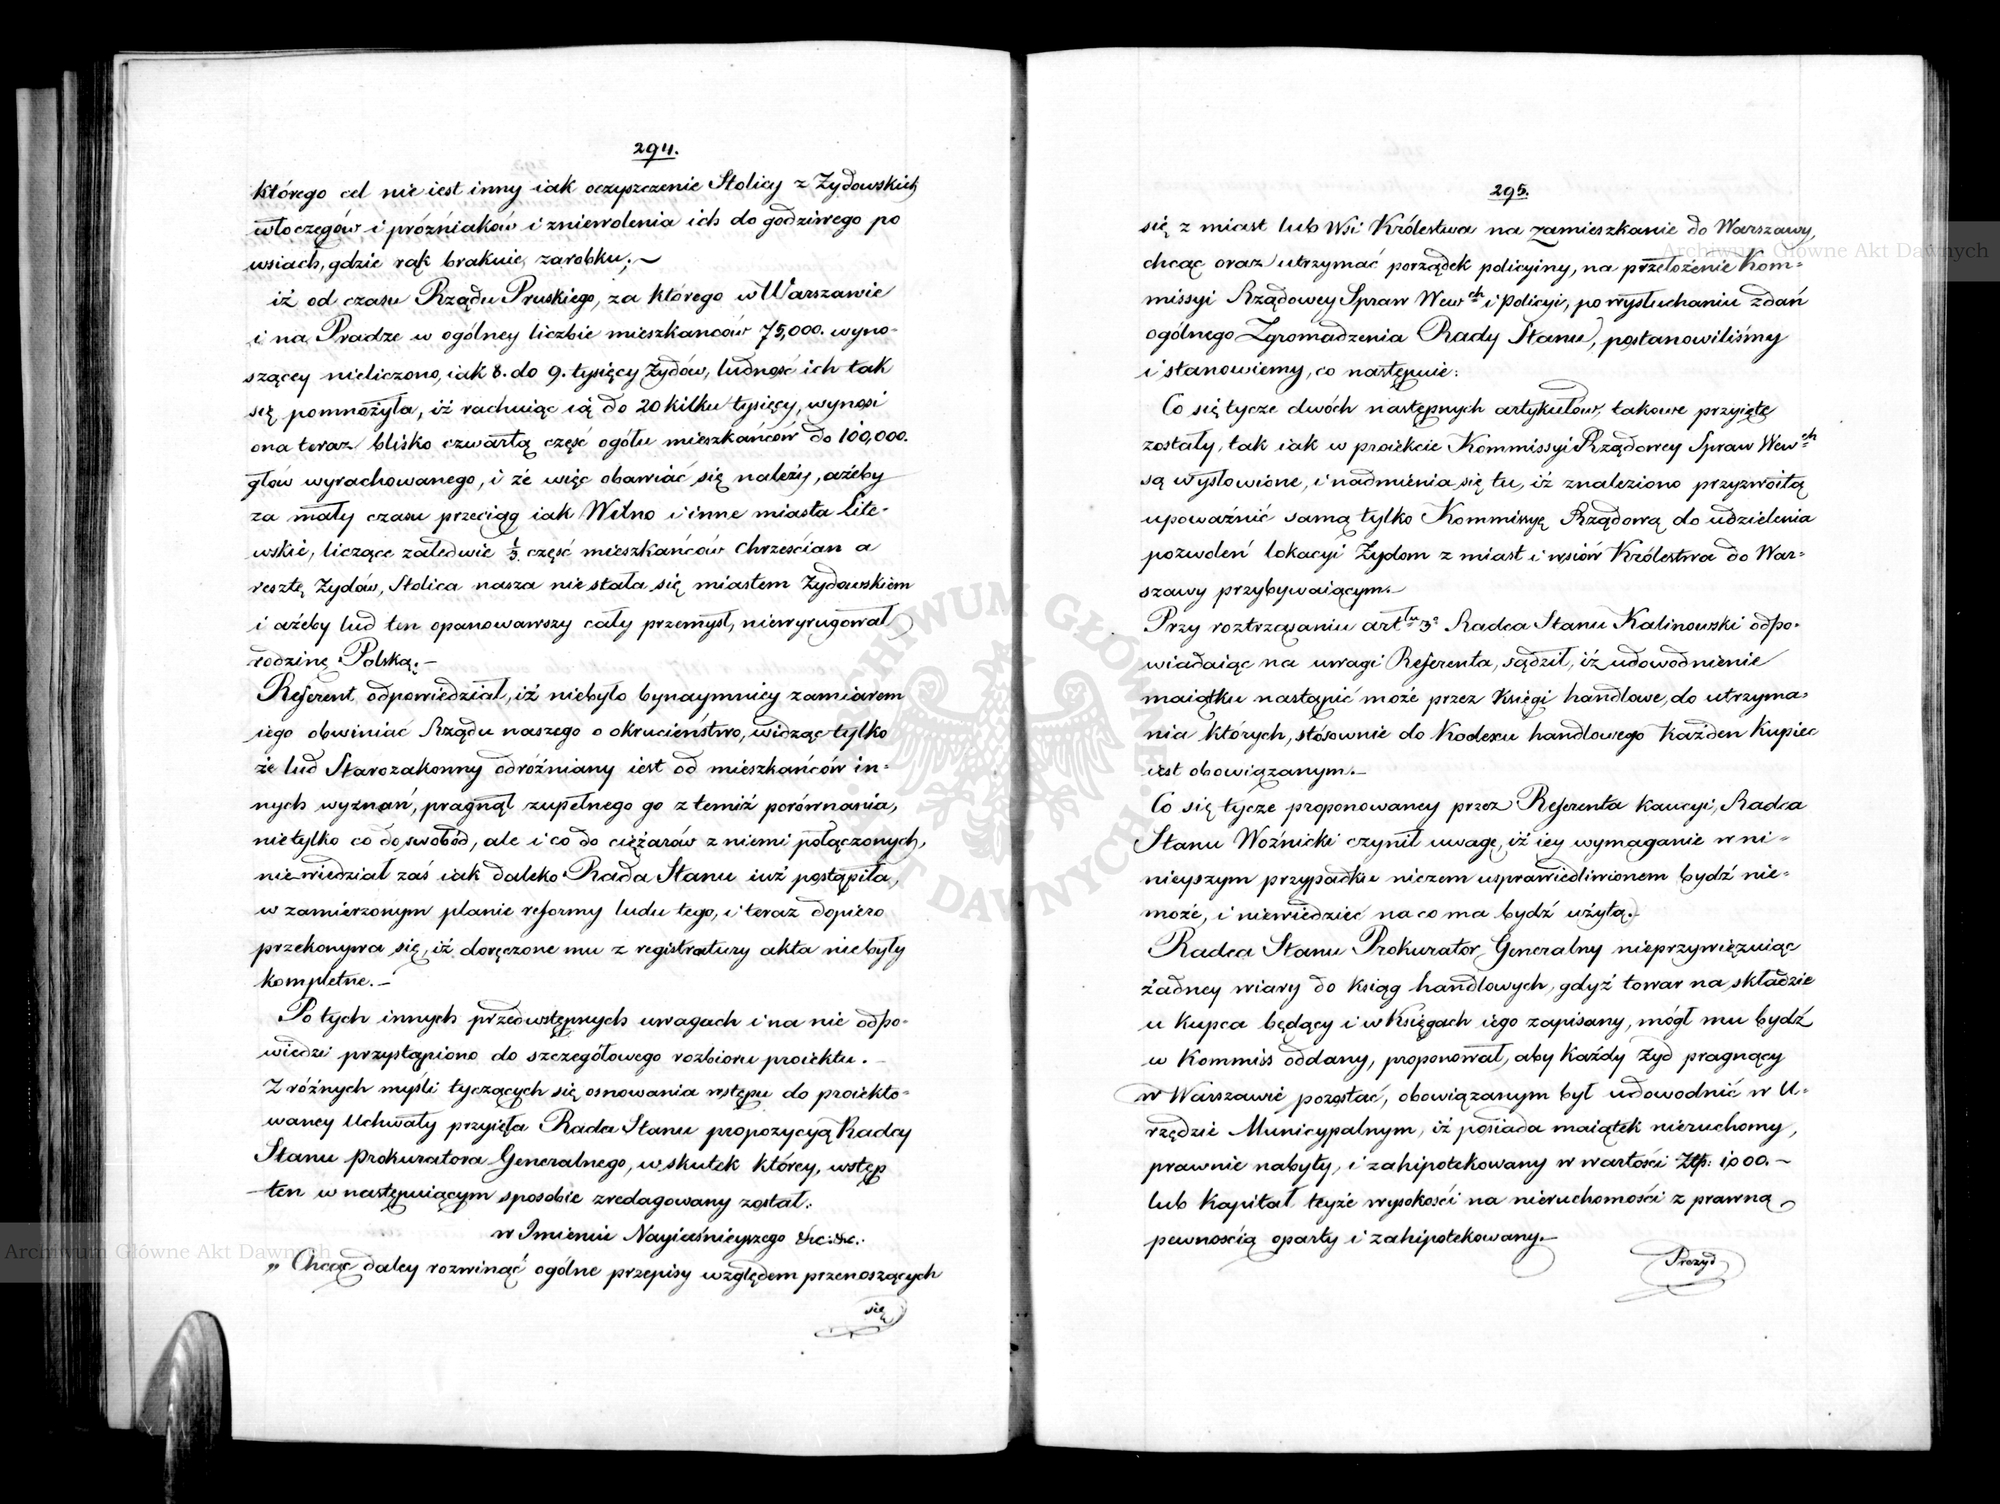 294.
którego cel nie iest inny iak oczyszczenie Stolicy z Żydowskich
włoczęgów i próżniaków i zniewolenia ich do godziwego po
wsiach, gdzie rąk brakuie, zarobku.—
iż od czasu Rządu Pruskiego, za którego w Warszawie
i na Pradze w ogólney liczbie mieszkancow 75,000. wyno-
szącey nieliczono, iak 8. do 9. tysięcy Żydów, ludność ich tak
się pomnożyła, iż rachuiąc ią do 20 kilku tysięcy, wynosi
ona teraz blisko czwartą część ogółu mieszkańców do 100,000.
głów wyrachowanego, i że więc obawiać się należy, ażeby
za mały czasu przeciąg iak Wilno i inne miasta Lite-
wskie, liczące zaledwie 1/3 część mieszkańców Chrześcian a
resztę Żydów, Stolica nasza nie stała się miastem Żydowskiem
i ażeby lud ten opanowawszy cały przemysł, niewyrugował
rodzinę Polską.—
Referent odpowiedział, iż niebyło bynaymniey zamiarem
iego obwiniać Rządu naszego o okrucieństwo, widząc tylko
że lud Starozakonny odróżniany iest od mieszkańców in-
nych wyznań, pragnął zupełnego go z temiż porównania,
nietylko co do swobód, ale i co do ciężarów z niemi połączonych,
niewiedział zaś iak daleko Rada Stanu iuż postąpiła,
w zamierzonym planie reformy ludu tego, i teraz dopiero
przekonywa się, iż doręczone mu z registratury akta nie były
kompletne.—
Po tych innych przedwstępnych uwagach i na nie odpo-
wiedzi przystąpiono do szczegółowego rozbioru proiektu.—
Z różnych myśli tyczących się osnowania wstępu do proiekto-
waney Uchwały przyięła Rada Stanu propozycyą Radcy
Stanu Prokuratora Generalnego, w skutek którey, wstęp
ten w następuiącym sposobie zredagowany został:
w Imieniu Nayiaśnieyszego &c: &c:
„ Chcąc daley rozwinąć ogólne przepisy względem przenoszących
się
295.
się z miast lub Wsi Królestwa na zamieszkanie do Warszawy,
chcąc oraz utrzymać porządek policyiny, na przełożenie Kom-
missyi Rządowey Spraw Wewch i Policyi, po wysłuchaniu zdań
ogólnego Zgromadzenia Rady Stanu, postanowiliśmy
i stanowiemy, co następuie:
Co się tycze dwóch następnych artykułów, takowe przyięte
zostały, tak iak w proiekcie Kommissyi Rządowey Spraw Wewch
są wysłowione, i nadmienia się tu, iż znaleziono przyzwoitą
upoważnić samą tylko Kommissyę Rządową do udzielenia
pozwoleń lokacyi Żydom z miast i wsiów Królestwa do War-
szawy przybywaiącym.—
Przy roztrząsaniu artłu 3o Radca Stanu Kalinowski odpo-
wiadaiąc na uwagi Referenta, sądził, iż udowodnienie
maiątku nastąpić może przez Księgi handlowe, do utrzyma-
nia których, stósownie do Kodexu handlowego każden Kupiec
iest obowiązanym.—
Co się tycze proponowaney przez Referenta kaucyi, Radca
Stanu Woźnicki czynił uwagę, iż iey wymaganie w ni-
nieyszym przypadku niczem usprawiedliwionem bydź nie-
może, i niewiedzieć na co ma bydź użytą.
Radca Stanu Prokurator Generalny nieprzywięzuiąc
żadney wiary do Ksiąg handlowych, gdyż towar na składzie
u Kupca będący i w Księgach iego zapisany, mógł mu bydź
w Kommiss oddany, proponował, aby każdy Żyd pragnący
w Warszawie pozostać, obowiązanym był udowodnić w U-
rzędzie Municypalnym, iż posiada maiątek nieruchomy,
prawnie nabyty, i zahipotekowany w wartości Złp: 1,000.—
lub Kapitał teyże wysokości na nieruchomości z prawną
pewnością oparty i zahipotekowany.—
Prezyd
Archiwum Główne Akt Dawnych
Archiwum Główne Akt Dawnych
ARCHIWUM GŁÓWNE AKT DAWNYCH